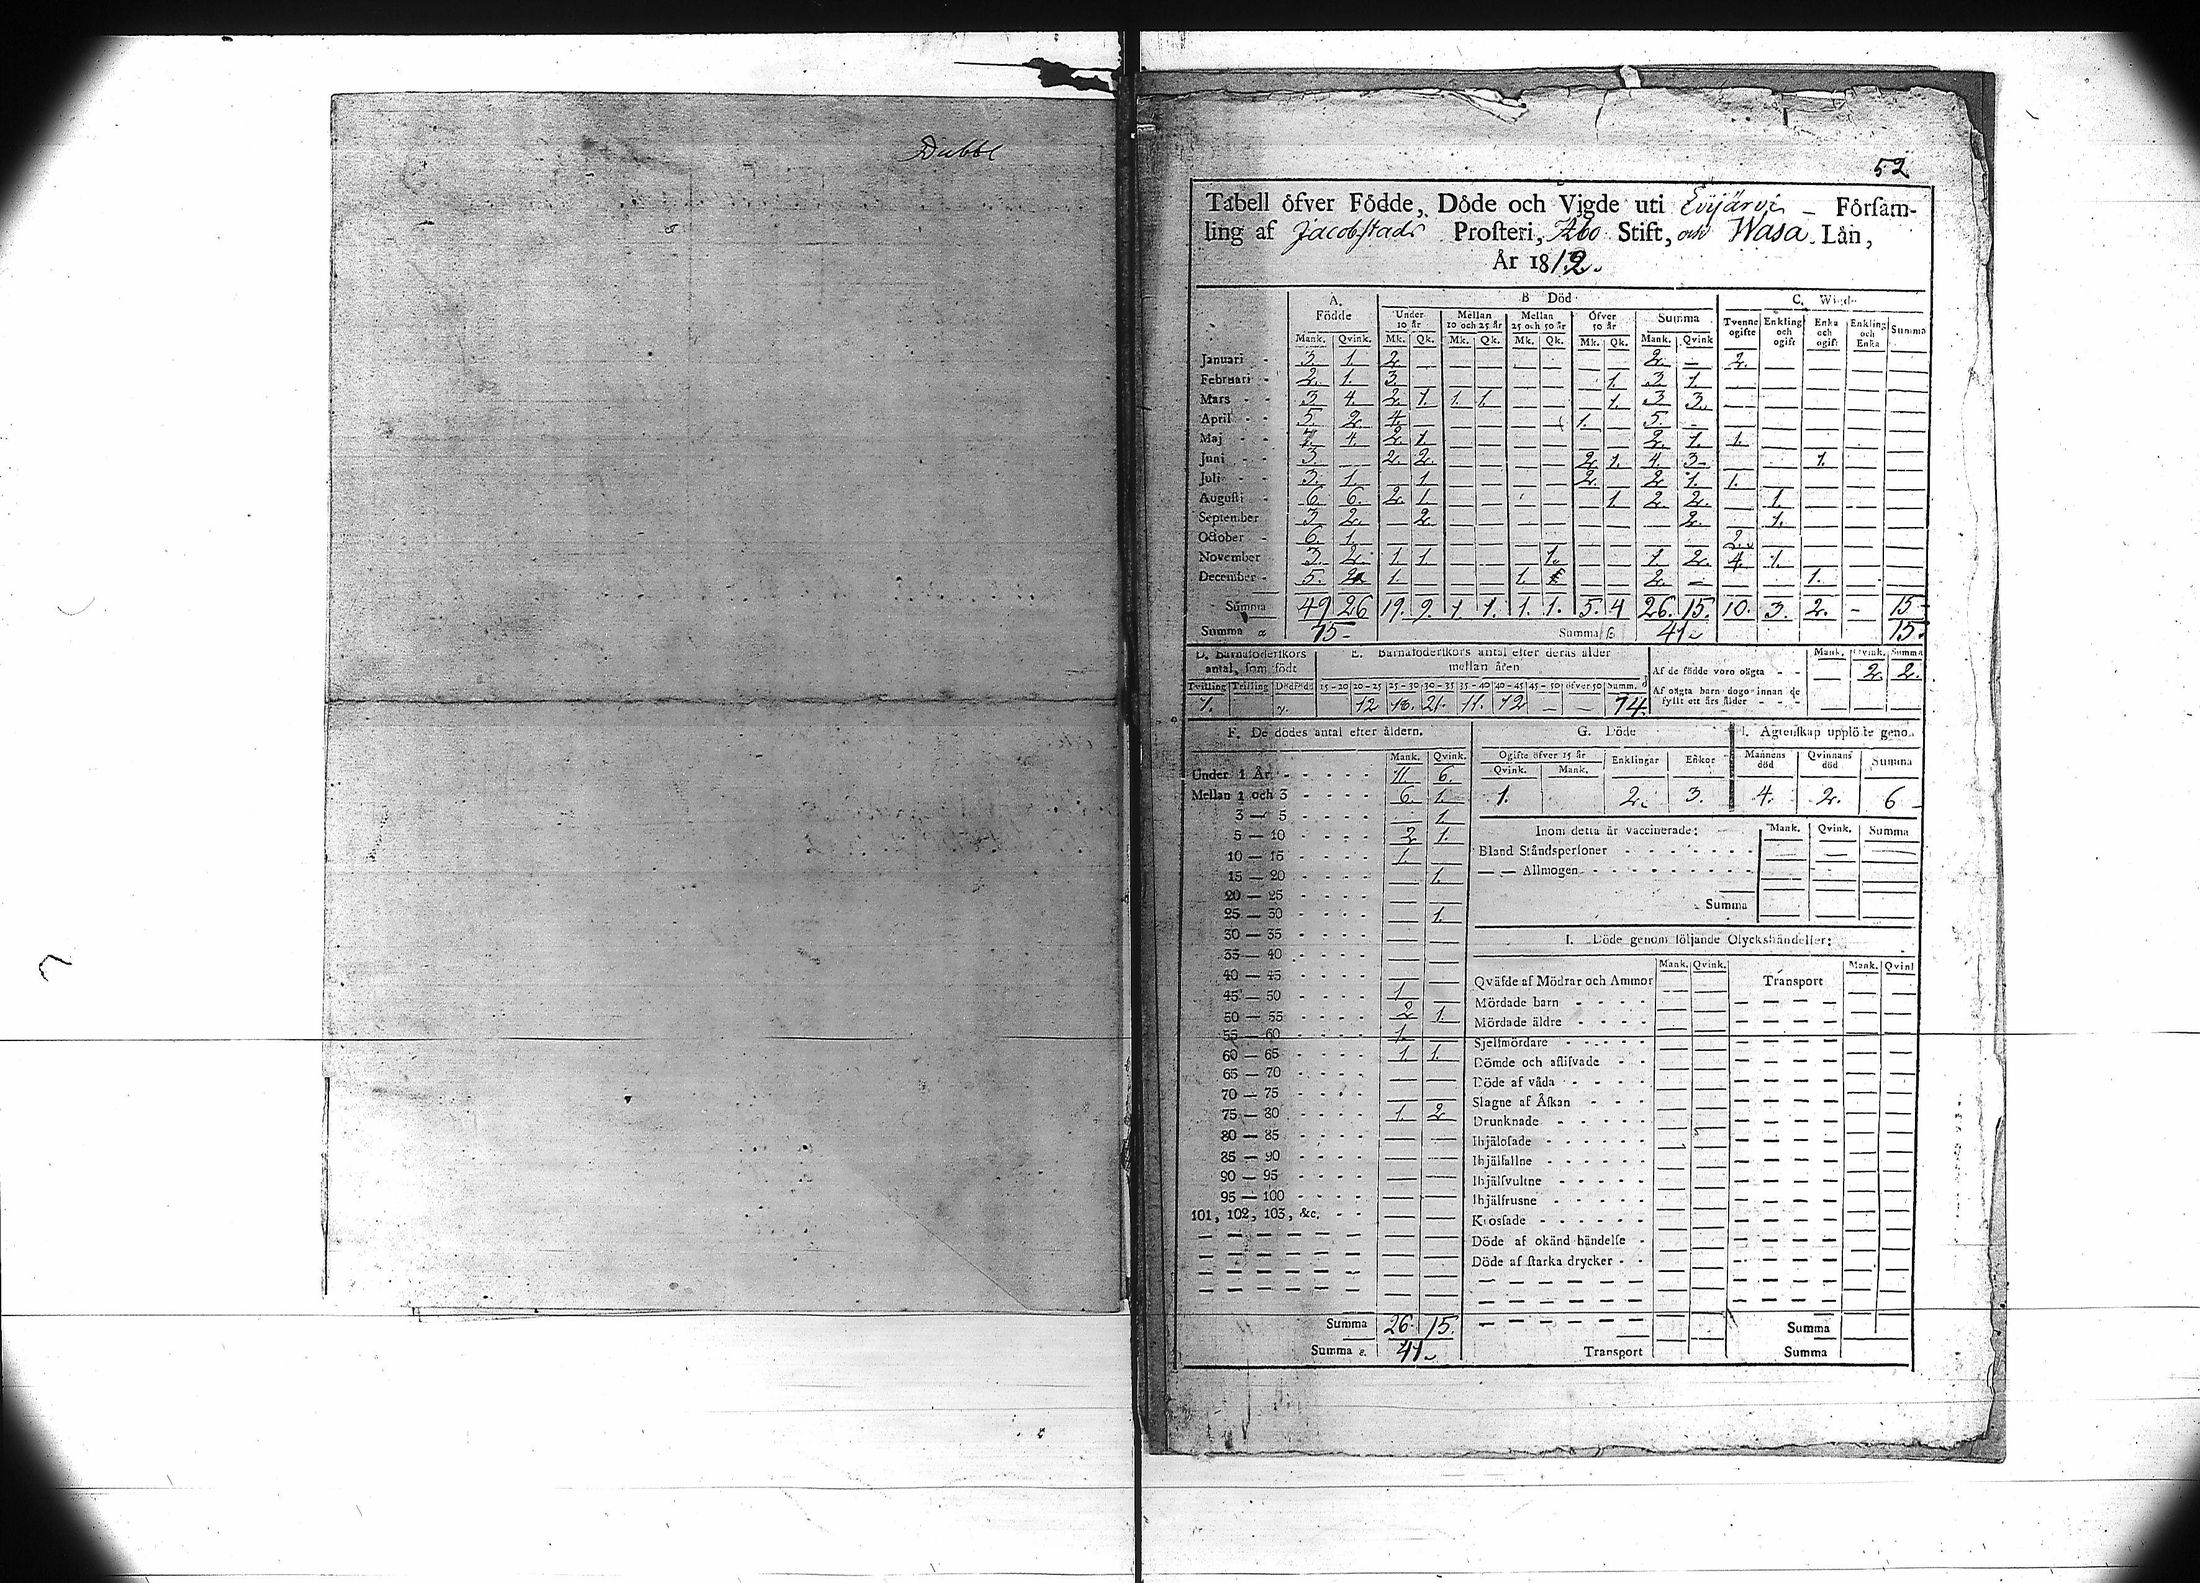 Dubbl
52
Tabell öfver Födde, Döde och Vigde uti Evijärvi – Församling af Jacobstads Prosteri, Åbo Stift, och Wasa Län,
År 1812.
A. Födde | B Död | C. Wigde
Under 10 år | Mellan 10 och 25 år | Mellan 25 och 50 år | Öfver 50 år | Summa | Tvenne ogifte | Enkling och ogift | Enka och ogift | Enkling och Enka | Summa
Mank. Qvink. Mk. Qk. Mk. Qk. Mk. Qk. Mk. Qk. Mank. Qvink
Januari - 3. 1. 2. — — — — — — — 2. — 2. — — — —
Februari - 2. 1. 3. — — — — — — 1. 3. 1. — — — — —
Mars - - 3. 4. 2. 1. 1. 1. — — — 1. 3. 3. — — — — —
April - - 5. 2. 4. — — — — — 1. — 5. — — — — — —
Maj - - 7. 4. 2. 1. — — — — — — 2. 1. 1. — — — —
Juni - - 3. — 2. 2. — — — — 2. 1. 4. 3. — — 1. — —
Juli - - 3. 1. — 1. — — — — 2. — 2. 1. 1. — — — —
Augusti - 6. 6. 2. 1. — — — — — 1. 2. 2. — 1. — — —
September 3. 2. — 2. — — — — — — — 2. — 1. — — —
October - 6. 1. — — — — — — — — — — 2. — — — —
November 3. 2. 1. 1. — — — 1. — — 1. 2. 4. 1. — — —
December - 5. 2. 1. — — — 1. — — — 2. — — — 1. — —
Summa 49 26 19. 9. 1. 1. 1. 1. 5. 4 26. 15. 10. 3. 2. – 15–
Summa α 75– Summa β 41. 15.
D. Barnaföderskors antal, som födt
Tvilling Trilling Dödfödd
1. 2.
E. Barnaföderskors antal efter deras ålder mellan åren
15 - 20 20 - 25 25 - 30 30 - 35 35 - 40 40 - 45 45 - 50 öfver 50 Summ.
12 18. 21. 11. 12 — — 74.
Mank. Qvink. Summa
Af de födde voro oägta - - — 2. 2.
Af oägta barn dogo innan de fyllt ett års ålder - - - — — —
F. De dödes antal efter åldern.
Mank. Qvink.
Under 1 År - - - - - 11. 6.
Mellan 1 och 3 - - - - 6. 1.
3 — 5 - - - - — 1.
5 — 10 - - - - 2 1.
10 — 15 - - - - 1. —
15 — 20 - - - - — 1.
20 — 25 - - - - — —
25 — 30 - - - - — 1.
30 — 35 - - - - — —
35 — 40 - - - - — —
40 — 45 - - - - — —
45 — 50 - - - - 1. —
50 — 55 - - - - 2 1.
55 — 60 - - - - 1. —
60 — 65 - - - - 1. 1.
65 — 70 - - - - — —
70 — 75 - - - - — —
75 — 80 - - - - 1. 2
80 — 85 - - - - — —
85 — 90 - - - - — —
90 — 95 - - - - — —
95 — 100 - - - - — —
101, 102, 103, &c. - - — —
Summa 26. 15.
Summa ε. 41.
G. Döde
Ogifte öfver 15 år | Enklingar | Enkor
Qvink. Mank.
1. 2. 3.
Ägtenskap uplöste geno
Mannens död | Qvinnans död | Summa
4. 2. 6
Inom detta år vaccinerade: Mank. Qvink. Summa
Bland Ståndspersoner - - - - - - — — —
— — Allmogen - - - - - - - - — — —
Summa — — —
I. Döde genom följande Olyckshändelser:
Mank. Qvink. Mank. Qvink
Qväfde af Mödrar och Ammor — — Transport — —
Mördade barn - - - -
Mördade äldre - - - -
Sjelfmördare - - - - -
Dömde och aflifvade - -
Döde af våda - - - -
Slagne af Åskan - - -
Drunknade - - - - -
Ihjälosade - - - - -
Ihjälfallne - - - - - -
Ihjälsvultne - - - - -
Ihjälfrusne - - - - -
Krossade - - - - - -
Döde af okänd händelse -
Döde af starka drycker - -
Summa
Transport Summa